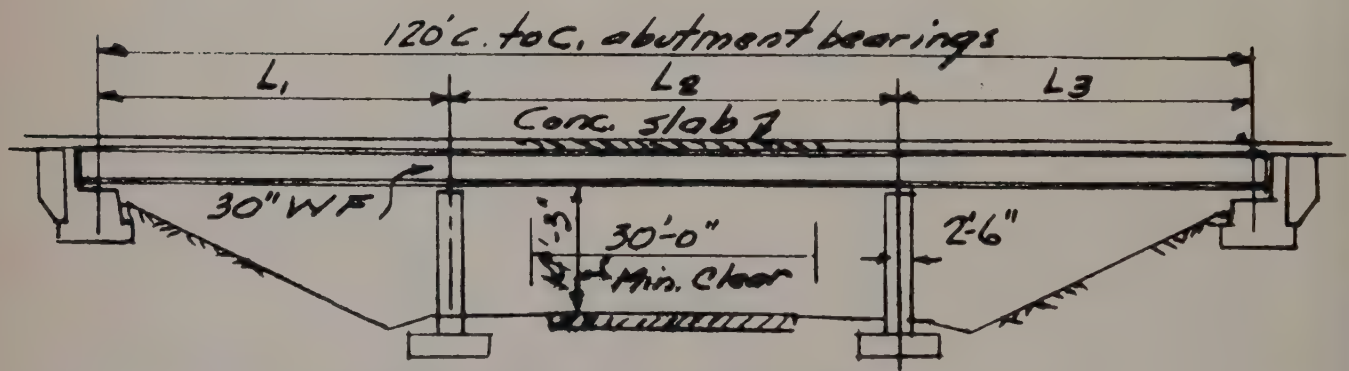 120' c. to c. abutment bearings
L1
L2
L3
Conc. slab
30" WF
30'-0"
Min. Clear
2'-6"